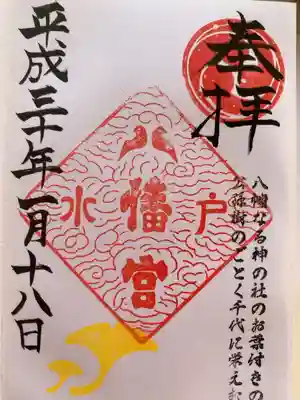 奉拝
八幡なる神の社のお葉付きの
公孫樹のごとく千代に栄えむ
八幡宮
水戸
平成三十年一月十八日